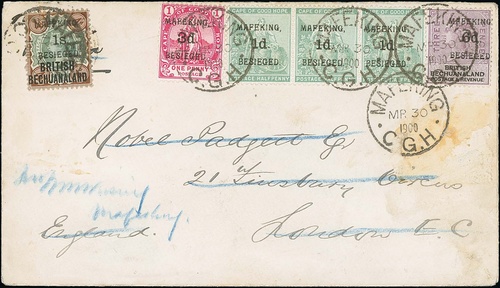 MAFEKING, 1s. BESIEGED. BRITISH BECHUANALAND
1 CAPE OF GOOD HOPE 1 MAFEKING, 3d BESIEGED. ONE PENNY POSTAGE
CAPE OF GOOD HOPE MAFEKING, 1d BESIEGED. HALFPENNY
CAPE OF GOOD HOPE MAFEKING, 1d BESIEGED. HALFPENNY
CAPE OF GOOD HOPE MAFEKING, 1d BESIEGED. HALFPENNY
MAFEKING, 6d BESIEGED. BRITISH BECHUANALAND POSTAGE & REVENUE
MAFEKING
MR 30
1900
C.G.H.
Nobel Padgett Esq
21 Finsbury Circus
London E.C
England.
Mafeking.